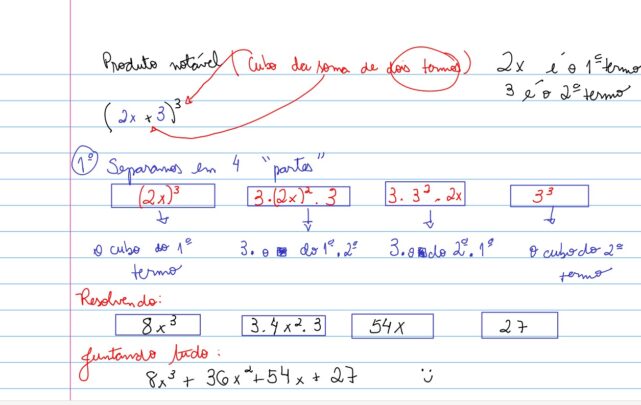 Produto notável (Cubo da soma de dois termos)
2x é o 1º termo
3 é o 2º termo
(2x + 3)³
1º Separamos em 4 "partes"
(2x)³ 3.(2x)².3 3.3².2x 3³
o cubo do 1º termo 3.o ■ do 1º.2º 3.o■do 2º.1º o cubo do 2º termo
Resolvendo:
8x³ 3.4x².3 54x 27
Juntando tudo:
8x³ + 36x² + 54x + 27